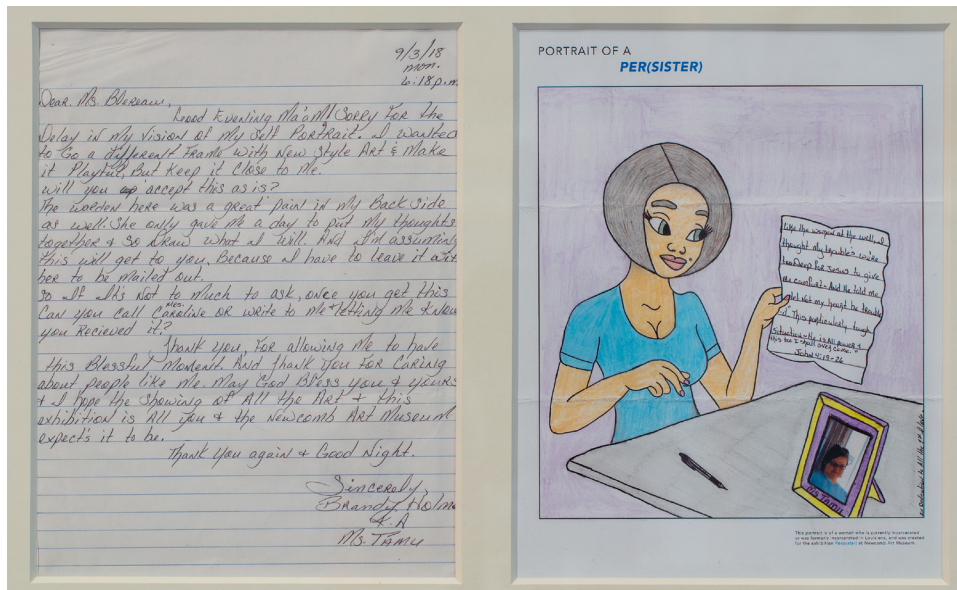 9/3/18
mon.
6:18 p.m
Dear. Ms. Blereau,
Good Evening Ma'am! Sorry For the
Delay in my Vision of My Self Portrait. I wanted
to Go a different Frame with New Style Art & Make
it Playful, But Keep it Close to Me.
Will you accept this as is?
The warden here was a great pain in my Back side
as well. She only gave me a day to put My thoughts
together & so Draw what I Will. And I'm assuming
this will get to you, Because I have to leave it with
her to be mailed out.
So If It's Not to Much to ask, once you get this
Can you call Mrs. Caroline OR write to Me letting Me Know
you Recieved it?
Thank you, For allowing Me to have
this Blessful Moment. And thank you For Caring
about people like Me. May God Bless you & yours
& I hope the Showing of All the Art & this
exhibition is All You & the Newcomb Art Museum
expect's it to be.
Thank You again & Good Night.
Sincerely,
Brandy Holm
K.A
Ms. Tamu
PORTRAIT OF A
PER(SISTER)
Like the woman at the well, I
thought My troubles were
too Deep for Jesus to give
me comfort. And He told me
let Not my heart be trouble
This particularly tough
Situation. He is All power &
this too I shall overcome."
John 4:13-26
Ms. Tamu
This portrait is of a woman who is currently incarcerated
or was formerly incarcerated in Louisiana, and was created
for the exhibition Per(sister) at Newcomb Art Museum.